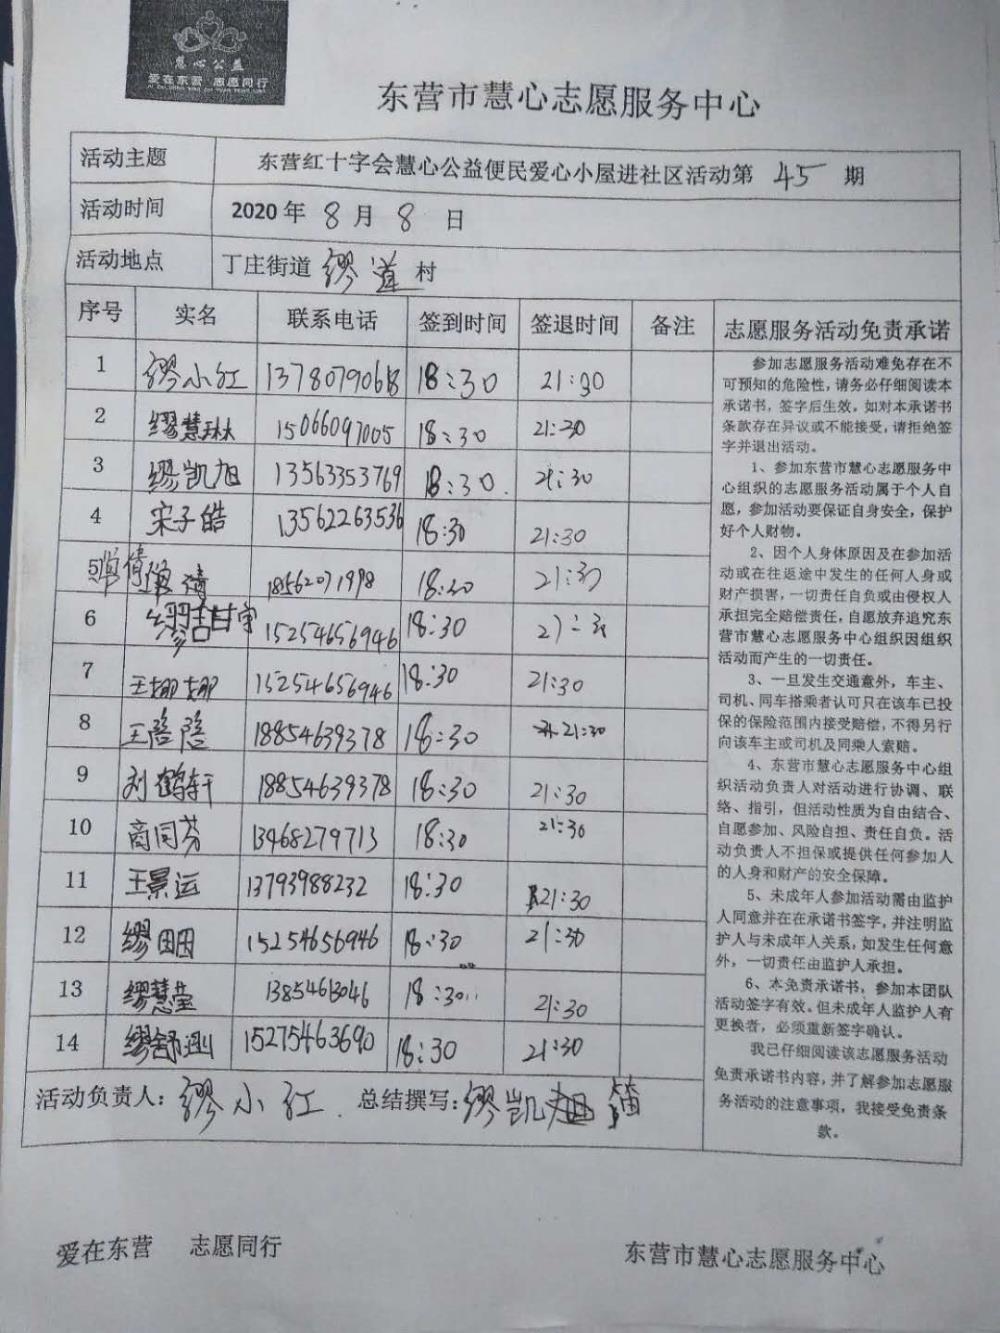 慧心公益
爱在东营 志愿同行
东营市慧心志愿服务中心
活动主题 东营红十字会慧心公益便民爱心小屋进社区活动第 45 期
活动时间 2020年 8 月 8 日
活动地点 丁庄街道 缪道 村
序号 实名 联系电话 签到时间 签退时间 备注
1 缪小红 18:30 21:30
2 缪慧琳 15066097005 18:30 21:30
3 缪凯旭 13563353769 18:30 21:30
4 宋子皓 13562263536 18:30 21:30
5 18:30 21:30
6 15254656946 18:30
7 王娜娜 15254656946 18:30 21:30
8 王陪陪 18854639378 18:30 21:30
9 刘鹤轩 18854639378 18:30 21:30
10 商同芬 13468279713 18:30 21:30
11 王景运 13793988232 18:30 21:30
12 缪田田 15254656946 18:30 21:30
13 缪慧莹 18:30 21:30
14 缪舒涵 15275463690 18:30 21:30
活动负责人：缪小红 总结撰写：缪凯旭
志愿服务活动免责承诺
参加志愿服务活动难免存在不
可预知的危险性，请务必仔细阅读本
承诺书，签字后生效。如对本承诺书
条款存在异议或不能接受，请拒绝签
字并退出活动。
1、参加东营市慧心志愿服务中
心组织的志愿服务活动属于个人自
愿，参加活动要保证自身安全，保护
好个人财物。
2、因个人身体原因及在参加活
动或在往返途中发生的任何人身或
财产损害，一切责任自负或由侵权人
承担完全赔偿责任，自愿放弃追究东
营市慧心志愿服务中心组织因组织
活动而产生的一切责任。
3、一旦发生交通意外，车主、
司机、同车搭乘者认可只在该车已投
保的保险范围内接受赔偿，不得另行
向该车主或司机及同乘人索赔。
4、东营市慧心志愿服务中心组
织活动负责人对活动进行协调、联
络、指引，但活动性质为自由结合、
自愿参加、风险自担、责任自负。活
动负责人不担保或提供任何参加人
的人身和财产的安全保障。
5、未成年人参加活动需由监护
人同意并在在承诺书签字，并注明监
护人与未成年人关系，如发生任何意
外，一切责任由监护人承担。
6、本免责承诺书，参加本团队
活动签字有效。但未成年人监护人有
更换者，必须重新签字确认。
我已仔细阅读该志愿服务活动
免责承诺书内容，并了解参加志愿服
务活动的注意事项，我接受免责条
款。
爱在东营 志愿同行
东营市慧心志愿服务中心